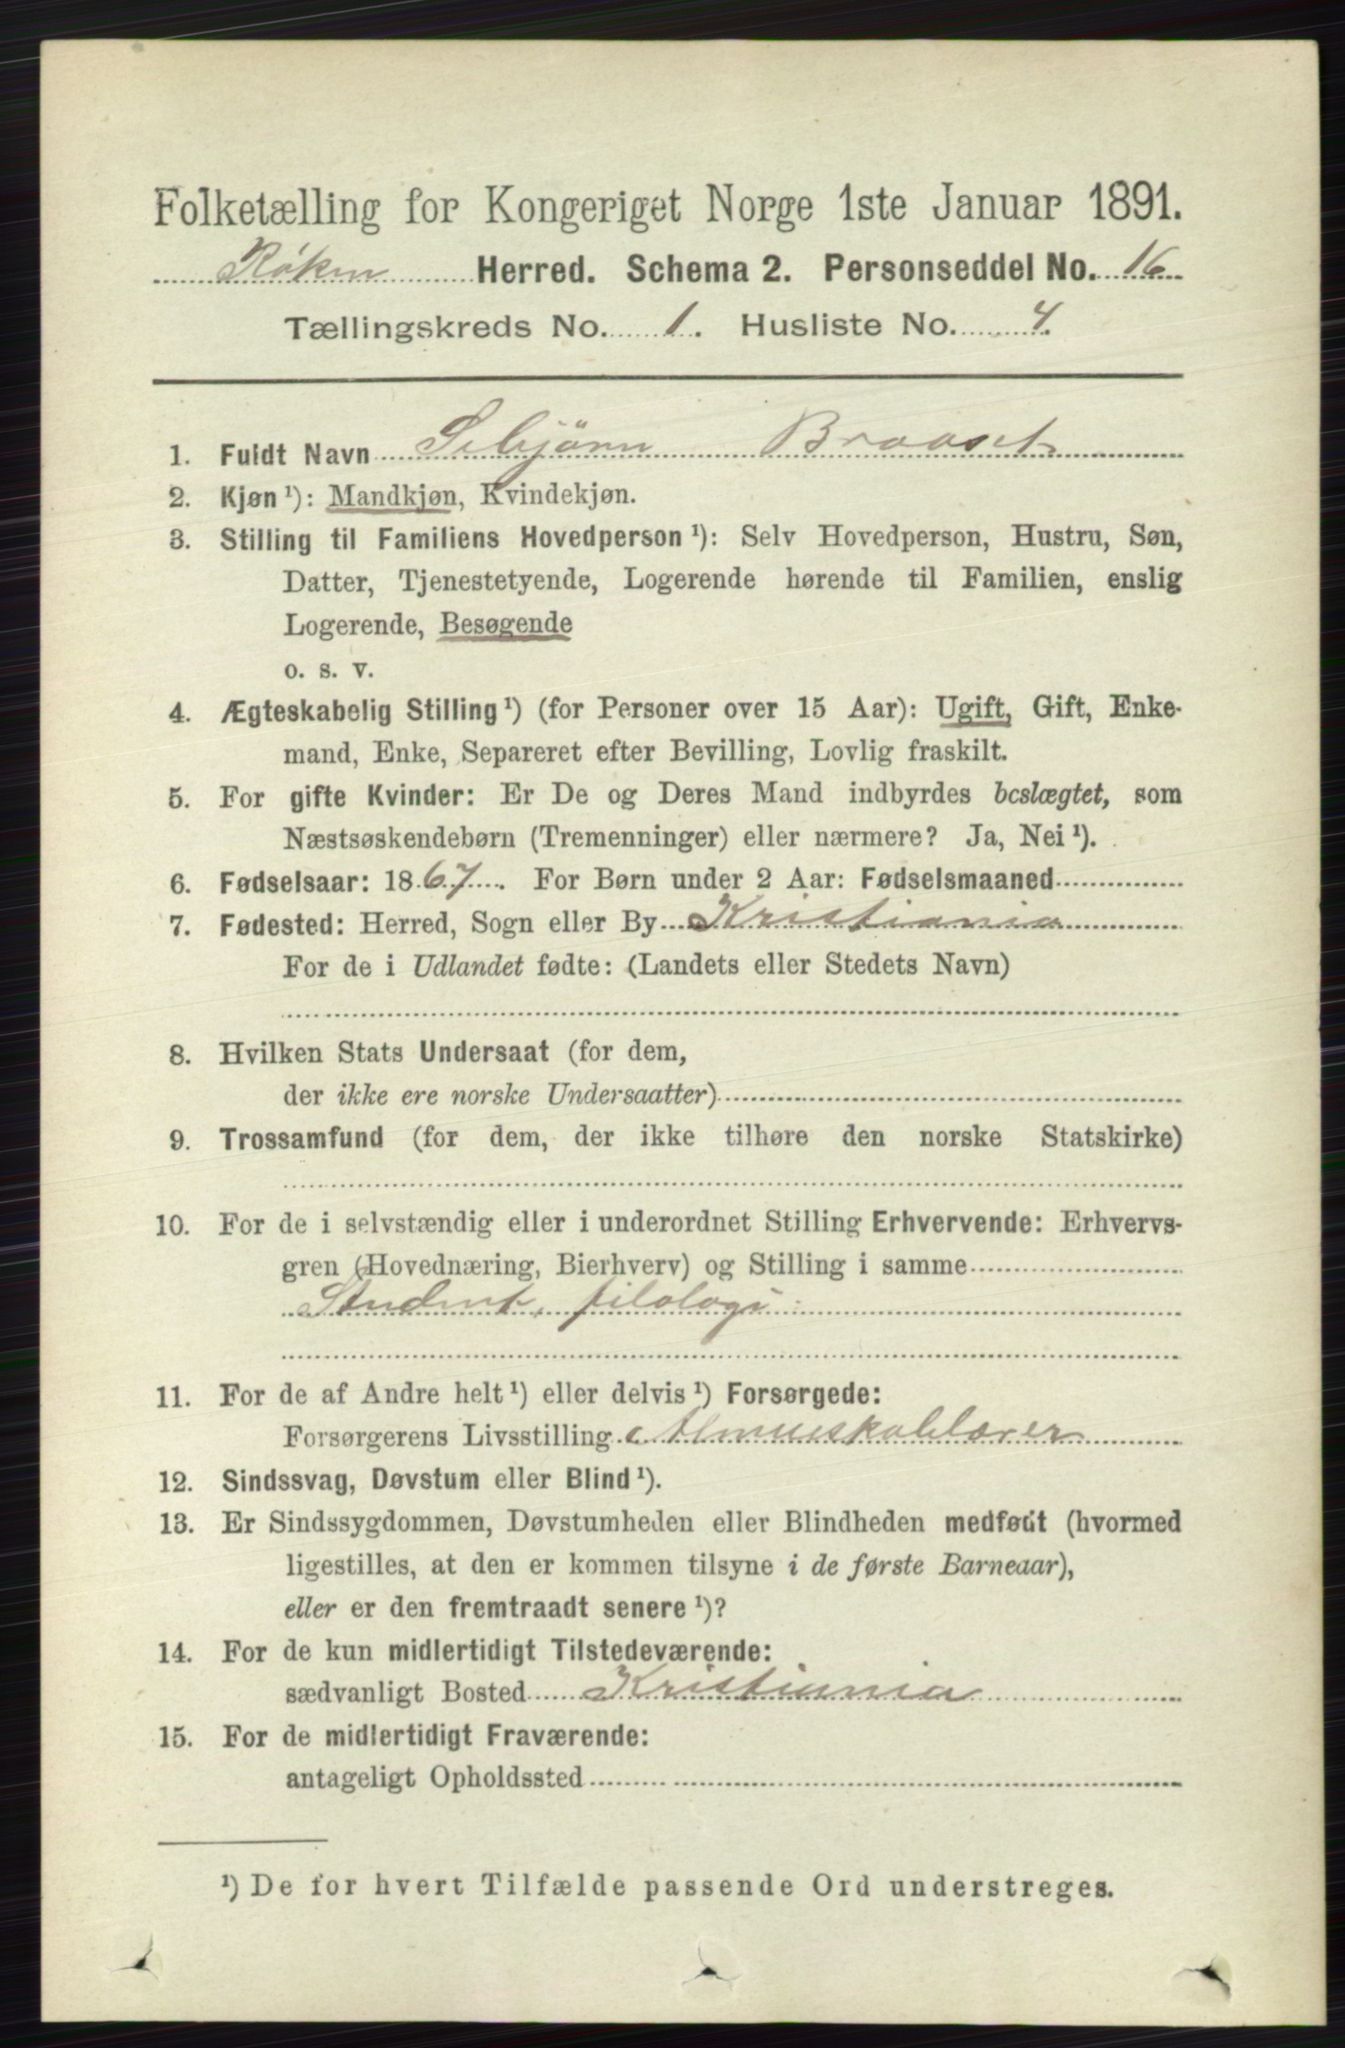 Folketælling for Kongeriget Norge 1ste Januar 1891.
Røken Herred. Schema 2. Personseddel No. 16
Tællingskreds No. 1. Husliste No. 4.
1. Fuldt Navn Sebjörn Braaset
2. Kjøn ¹): Mandkjøn, Kvindekjøn.
3. Stilling til Familiens Hovedperson ¹): Selv Hovedperson, Hustru, Søn,
Datter, Tjenestetyende, Logerende hørende til Familien, enslig
Logerende, Besøgende
o. s. v.
4. Ægteskabelig Stilling ¹) (for Personer over 15 Aar): Ugift, Gift, Enke-
mand, Enke, Separeret efter Bevilling, Lovlig fraskilt.
5. For gifte Kvinder: Er De og Deres Mand indbyrdes beslægtet, som
Næstsøskendebørn (Tremenninger) eller nærmere? Ja, Nei ¹).
6. Fødselsaar: 1867. For Børn under 2 Aar: Fødselsmaaned
7. Fødested: Herred, Sogn eller By Kristiania
For de i Udlandet fødte: (Landets eller Stedets Navn)
8. Hvilken Stats Undersaat (for dem,
der ikke ere norske Undersaatter)
9. Trossamfund (for dem, der ikke tilhøre den norske Statskirke)
10. For de i selvstændig eller i underordnet Stilling Erhvervende: Erhvervs-
gren (Hovednæring, Bierhverv) og Stilling i samme
Student, filologi
11. For de af Andre helt ¹) eller delvis ¹) Forsørgede:
Forsørgerens Livsstilling Almueskolelærer
12. Sindssvag, Døvstum eller Blind ¹).
13. Er Sindssygdommen, Døvstumheden eller Blindheden medfødt (hvormed
ligestilles, at den er kommen tilsyne i de første Barneaar),
eller er den fremtraadt senere ¹)?
14. For de kun midlertidigt Tilstedeværende:
sædvanligt Bosted Kristiania
15. For de midlertidigt Fraværende:
antageligt Opholdssted
¹) De for hvert Tilfælde passende Ord understreges.